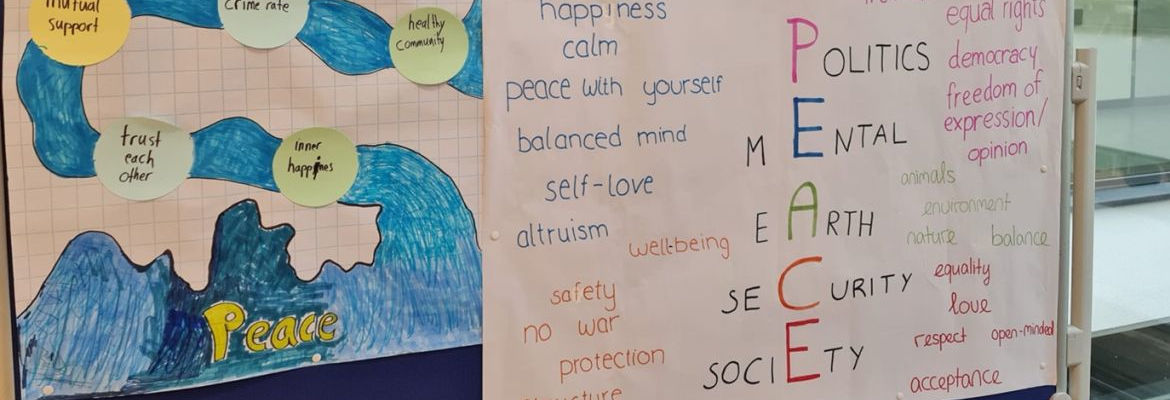 mutual
support
crime rate
healthy
community
trust
each
other
inner
happines
Peace
happiness
calm
peace with yourself
balanced mind
self-love
altruism
well-being
safety
no war
protection
POLITICS
MENTAL
EARTH
SECURITY
SOCIETY
equal rights
democracy
freedom of
expression/
opinion
animals
environment
nature balance
equality
love
respect open-minded
acceptance